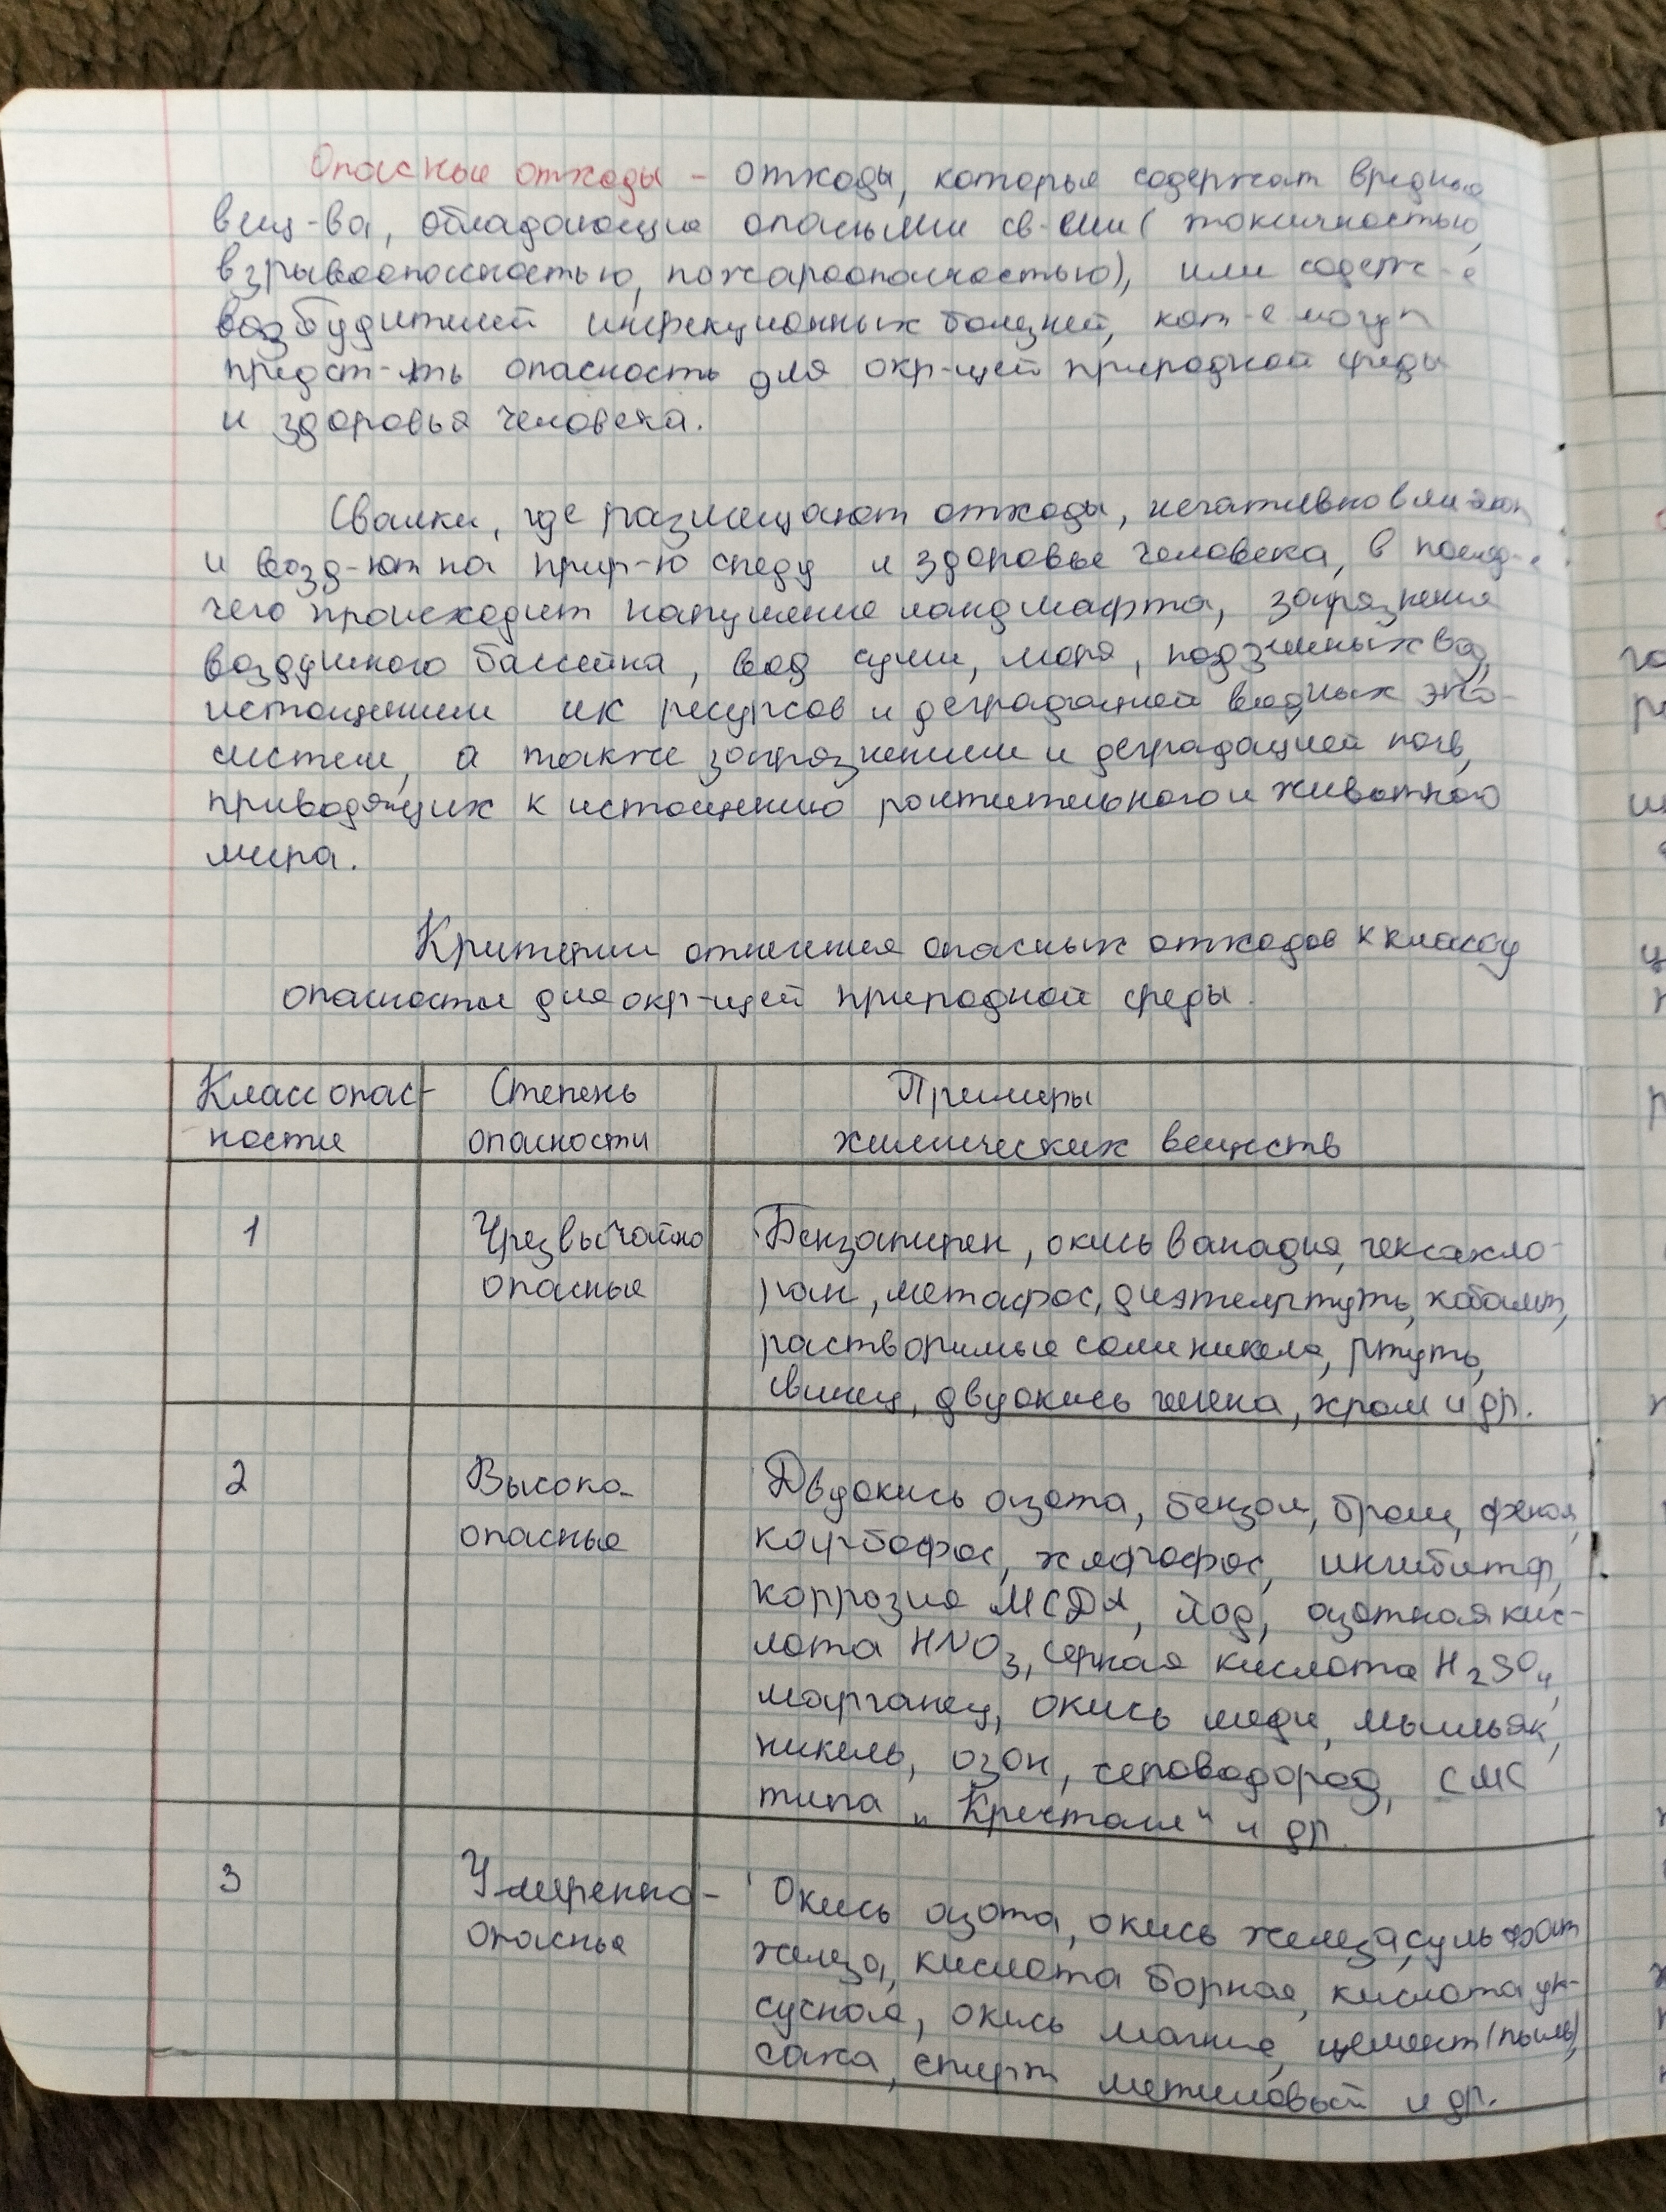 Опасные отходы – отходы, которые содержат вредные
вещ-ва, обладающие опасными св-ми ( токсичностью,
взрывоопасностью, пожароопасностью), или содерж-е
возбудителей инфекционных болезней, кот-е могут
предст-ть опасность для окр-щей природной среды
и здоровья человека.
Свалки, где размещают отходы, негативно влияют
и возд-ют на прир-ю среду и здоровье человека, в
чего происходит нарушение ландшафта, загрязнения
воздушного бассейна, вод суши, моря, подземных вод,
истощением их ресурсов и деградацией водных эко-
систем, а также загрязнением и деградацией почв,
приводящих к истощению растительного и животного
мира.
Критерии отнесения опасных отходов к классу
опасности для окр-щей природной среды.
Класс опас- Степень Примеры
ности опасности химических веществ
1 Чрезвычайно Бензапирен, окись ванадия, гексахло-
опасные ран, метафос, диэтилртуть, кобальт,
растворимые соли никеля, ртуть,
свинец, двуокись хрома, хром и др.
2 Высоко- Двуокись азота, бензол, бром, фенол,
опасные карбофос, хлорофос, ингибитор,
коррозия МСДА, йод, азотная кис-
лота HNO3, серная кислота H2SO4,
марганец, окись меди, мышьяк,
никель, озон, сероводород, СМС
типа „Кристалл“ и др.
3 Умеренно- Окись азота, окись железа, сульфат
опасные железа, кислота борная, кислота ук-
сусная, окись магния, цемент (пыль),
сажа, спирт метиловый и др.